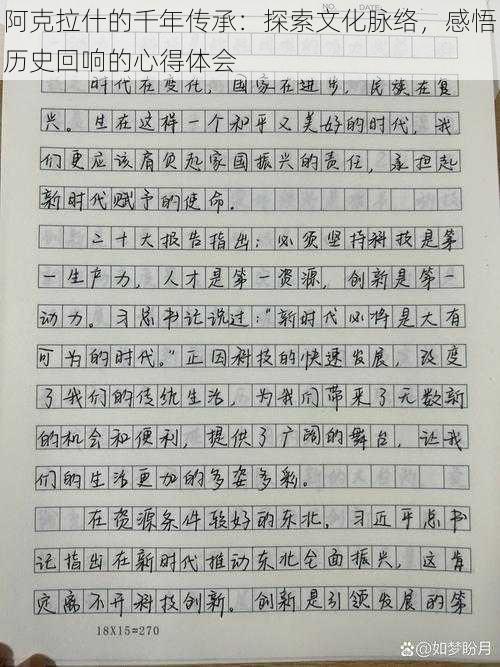 阿克拉什的千年传承：探索文化脉络，感悟
历史回响的心得体会
时代在变化，国家在进步，民族在复
兴。生在这样一个和平又美好的时代，我
们更应该肩负起家国振兴的责任，承担起
新时代赋予的使命.
二十大报告指出：必须坚持科技是第
一生产力，人才是第一资源，创新是第一
动力。习总书记说过："新时代必将是大有
可为的时代。"正因科技的快速发展，改变
了我们的传统生活，为我们带来了无数新
的机会和便利，提供了广阔的舞台，让我
们的生活更加的多姿多彩。
在资源条件较好的东北，习近平总书
记指出在新时代推动东北全面振兴，这肯
定离不开科技创新。创新是引领发展的第
18X15=270
@如梦盼月